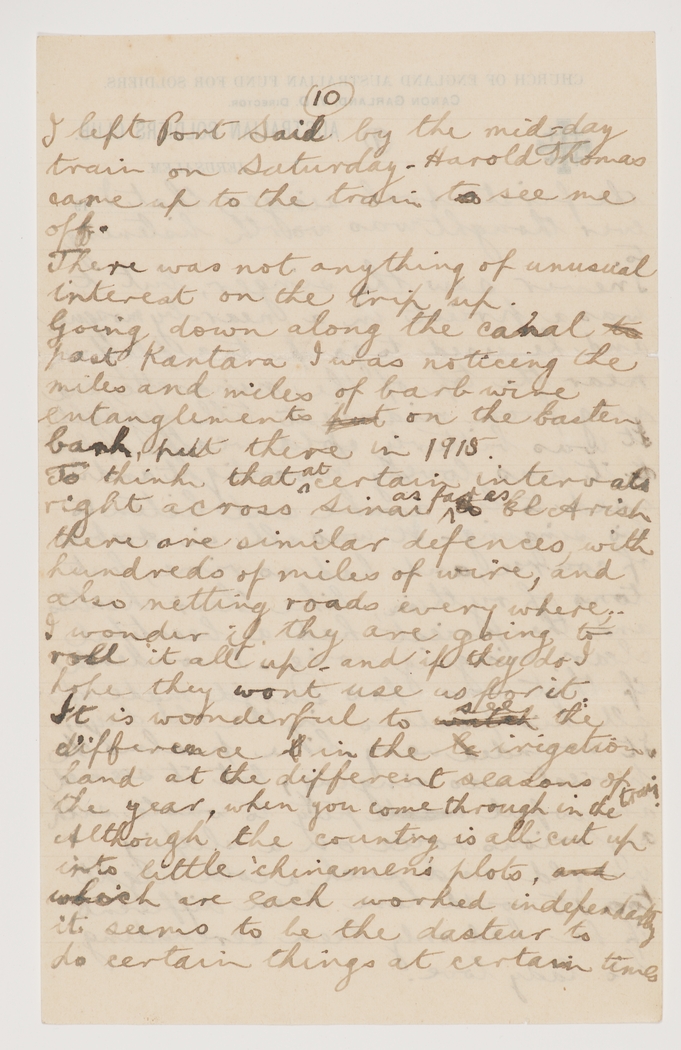 (10)
I left Port Said by the mid-day
train on Saturday - Harold Thomas
came up to the train to see me
off.
There was not anything of unusual
interest on the trip up.
Going down along the canal to
past Kantara I was noticing the
miles and miles of barb wire
entanglements put on the Easten
bank, put there in 1915.
To think that at certain intervals
right across Sinai as far as El Arish
there are similar defences, with
hundreds of miles of wire, and
also netting roads every where.
I wonder if thy are going to
roll it all up - and if they do I
hope they wont use us for it.
It is wonderful to watch see the
difference in the irigation
land at the different seasons of
the year, when you come through in the train.
Although the country is all cut up
into little 'chinamen's plots, and
which are each worked independantly
it seems to be the dasteur to
do certain things at certain times